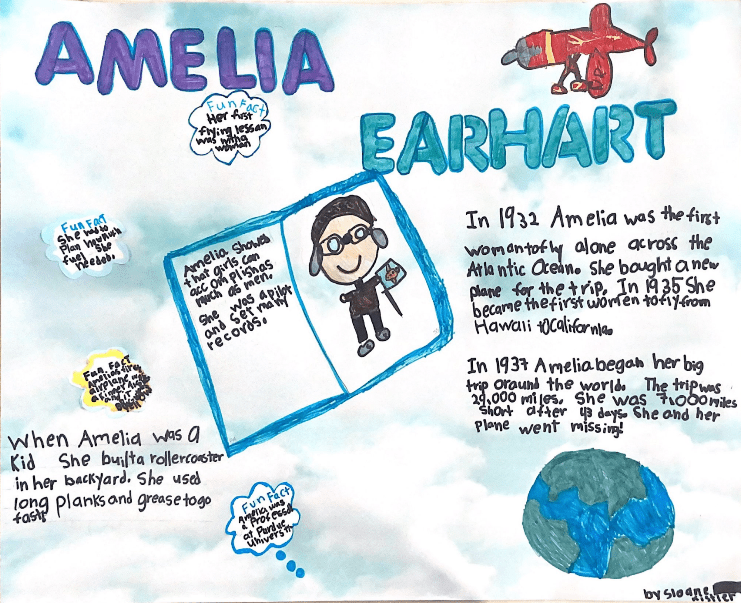 AMELIA
EARHART
Fun Fact
Her first
flying lessan
was with a
woman
Fun Fact
She had to
plan how much
fuel She
needed.
Amelia Showed
that girls can
accomplish as
much as men.
She was a Pilot
and Set many
records.
In 1932 Amelia was the first
woman to fly alone across the
Atlantic Ocean. She bought a new
plane for the trip. In 1935 She
became the first women to fly from
Hawaii to California.
In 1937 Amelia began her big
trip around the world. The trip was
29,000 miles. She was 7,000 miles
Short after 43 days. She and her
Plane went missing!
Fun Fact
Amelias first
airplane was
When Amelia was a
Kid She built a rollercoaster
in her backyard. She used
long planks and grease to go
fast!
Fun Fact
Amelia was
a Professor
at Purdue
University
by Sloane